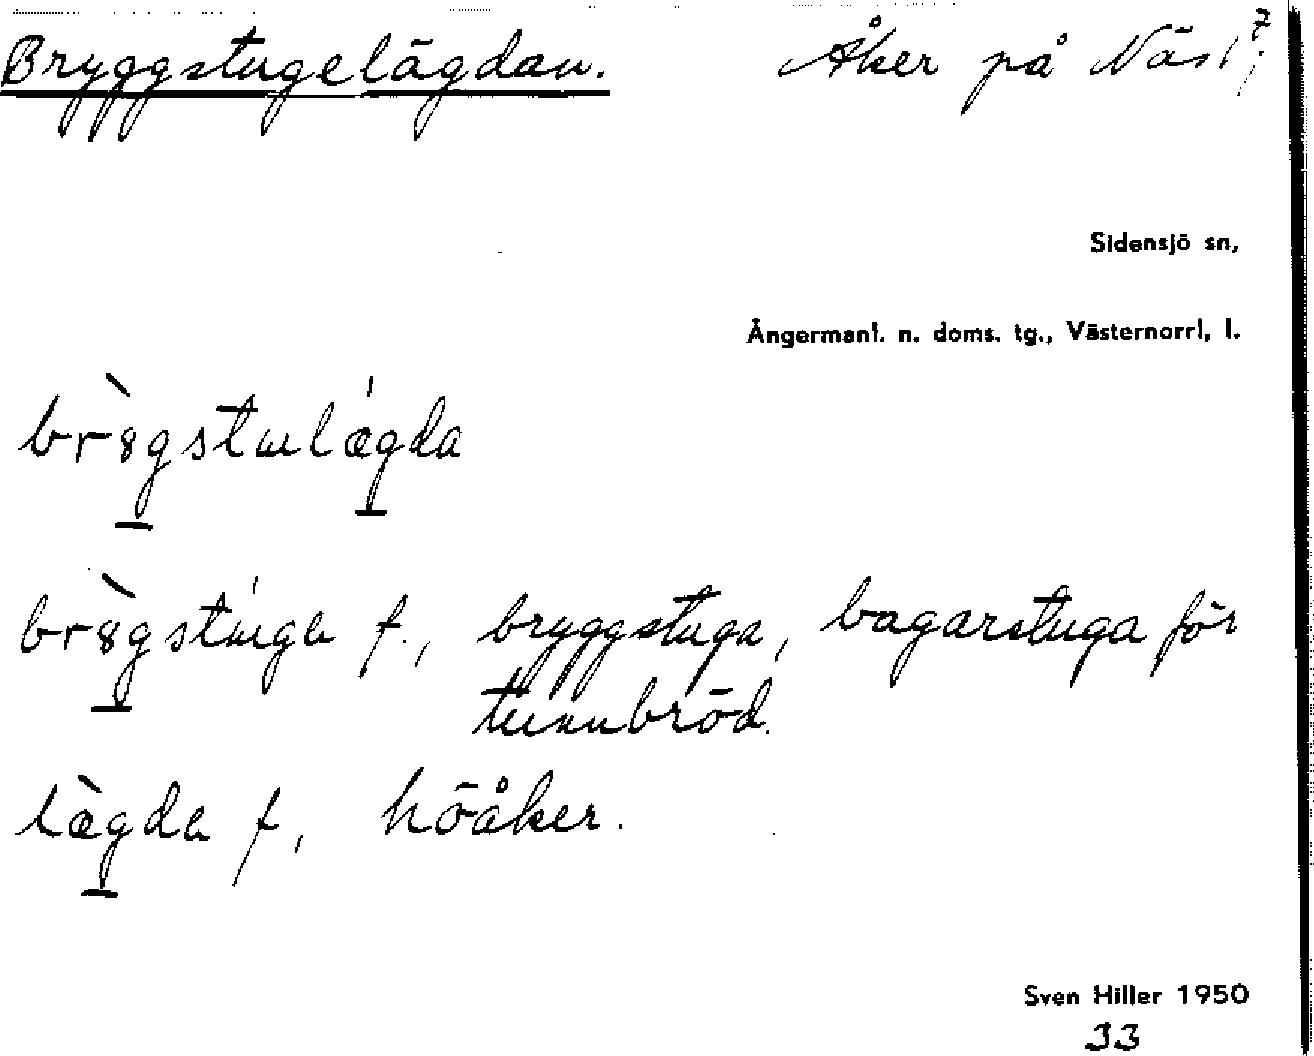 Bryggstugelägdan. Åker på Näs 1⁷
Sidensjö sn,
Ångermanl. n. doms. tg., Västernorrl. l.
br8̀gstɯlǽgda
br8̀gstɯ́ga f., bryggstuga, bagarstuga för
tunnbröd.
læ̀gda f, höåker.
Sven Hiller 1950
33